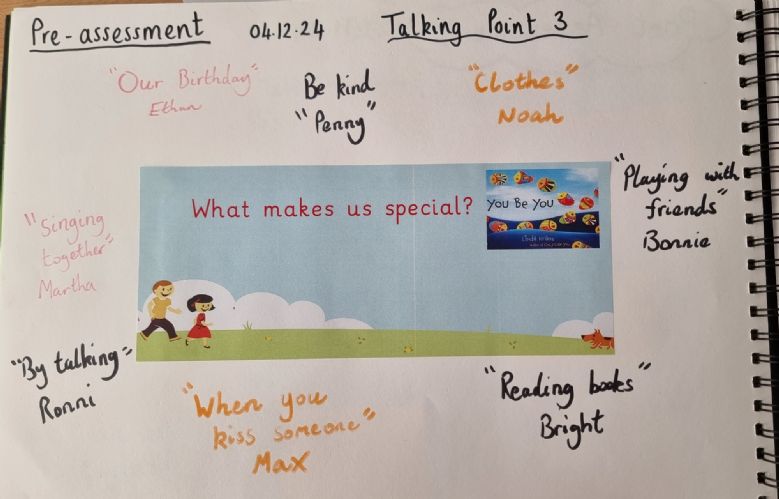 Pre-assessment 04.12.24 Talking Point 3
"Our Birthday"
Ethan
Be kind
"Penny"
"Clothes"
Noah
"Playing with
friends"
Bonnie
What makes us special?
You Be You
"Singing
together"
Martha
"By talking"
Ronni
"When you
kiss someone"
Max
"Reading books"
Bright